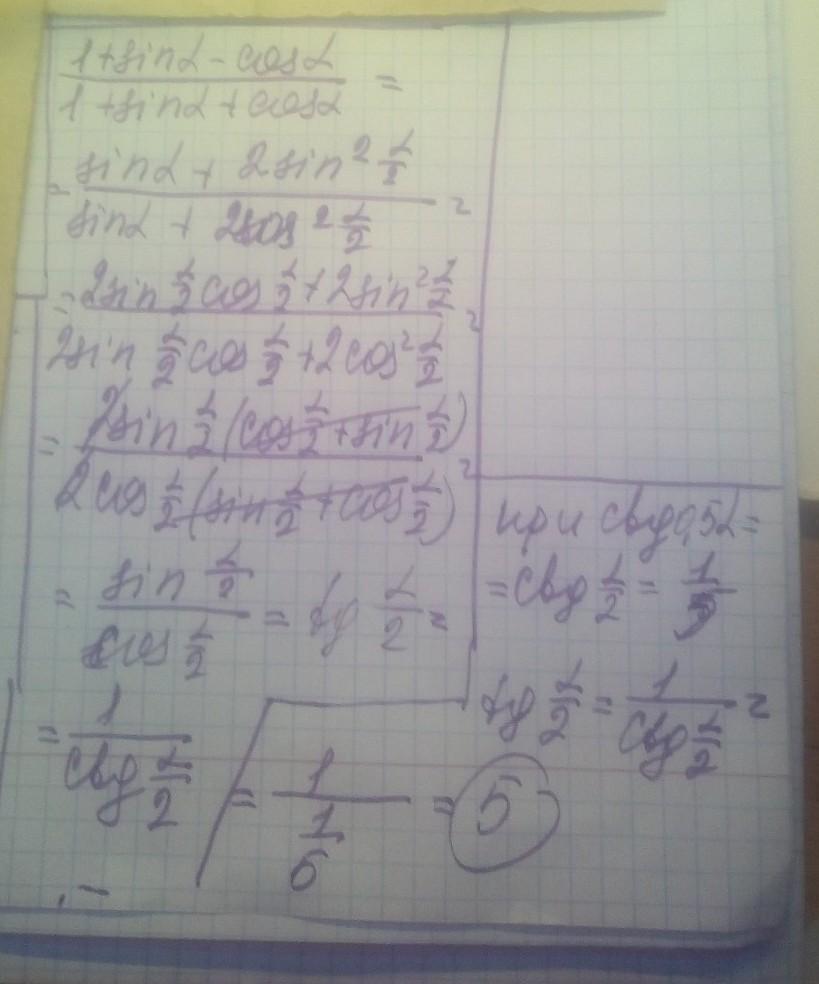 (1+sinα-cosα)/(1+sinα+cosα) =
= (sinα + 2sin² α/2)/(sinα + 2cos² α/2) =
= (2sin α/2 cos α/2 + 2sin² α/2)/(2sin α/2 cos α/2 + 2cos² α/2) =
= (2sin α/2 (cos α/2 + sin α/2))/(2cos α/2 (sin α/2 + cos α/2)) =
= (sin α/2)/(cos α/2) = tg α/2 =
= 1/(ctg α/2)
= 1/(1/5) = 5
при ctg0,5α =
= ctg α/2 = 1/5
tg α/2 = 1/(ctg α/2) =